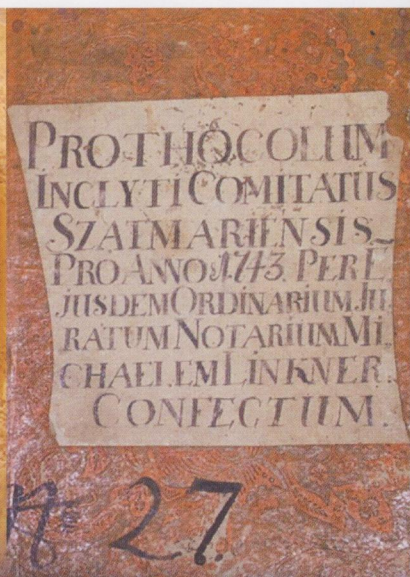 PROTHOCOLUM
INCLYTI COMITATUS
SZATMARIENSIS
PRO ANNO 1743. PER E
JUSDEM ORDINARIUM JU
RATUM NOTARIUM MI
CHAELEM LINKNER.
CONFECTUM.
N 27.